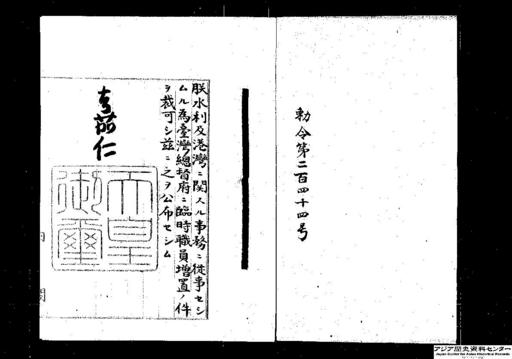 勅令第二百四十四号
朕水利及港湾ニ関スル事務ニ従事セシ
ムル為臺灣總督府ニ臨時職員増置ノ件
ヲ裁可シ茲ニ之ヲ公布セシム
嘉仁
天皇
御璽
アジア歴史資料センター
Japan Center for Asian Historical Records